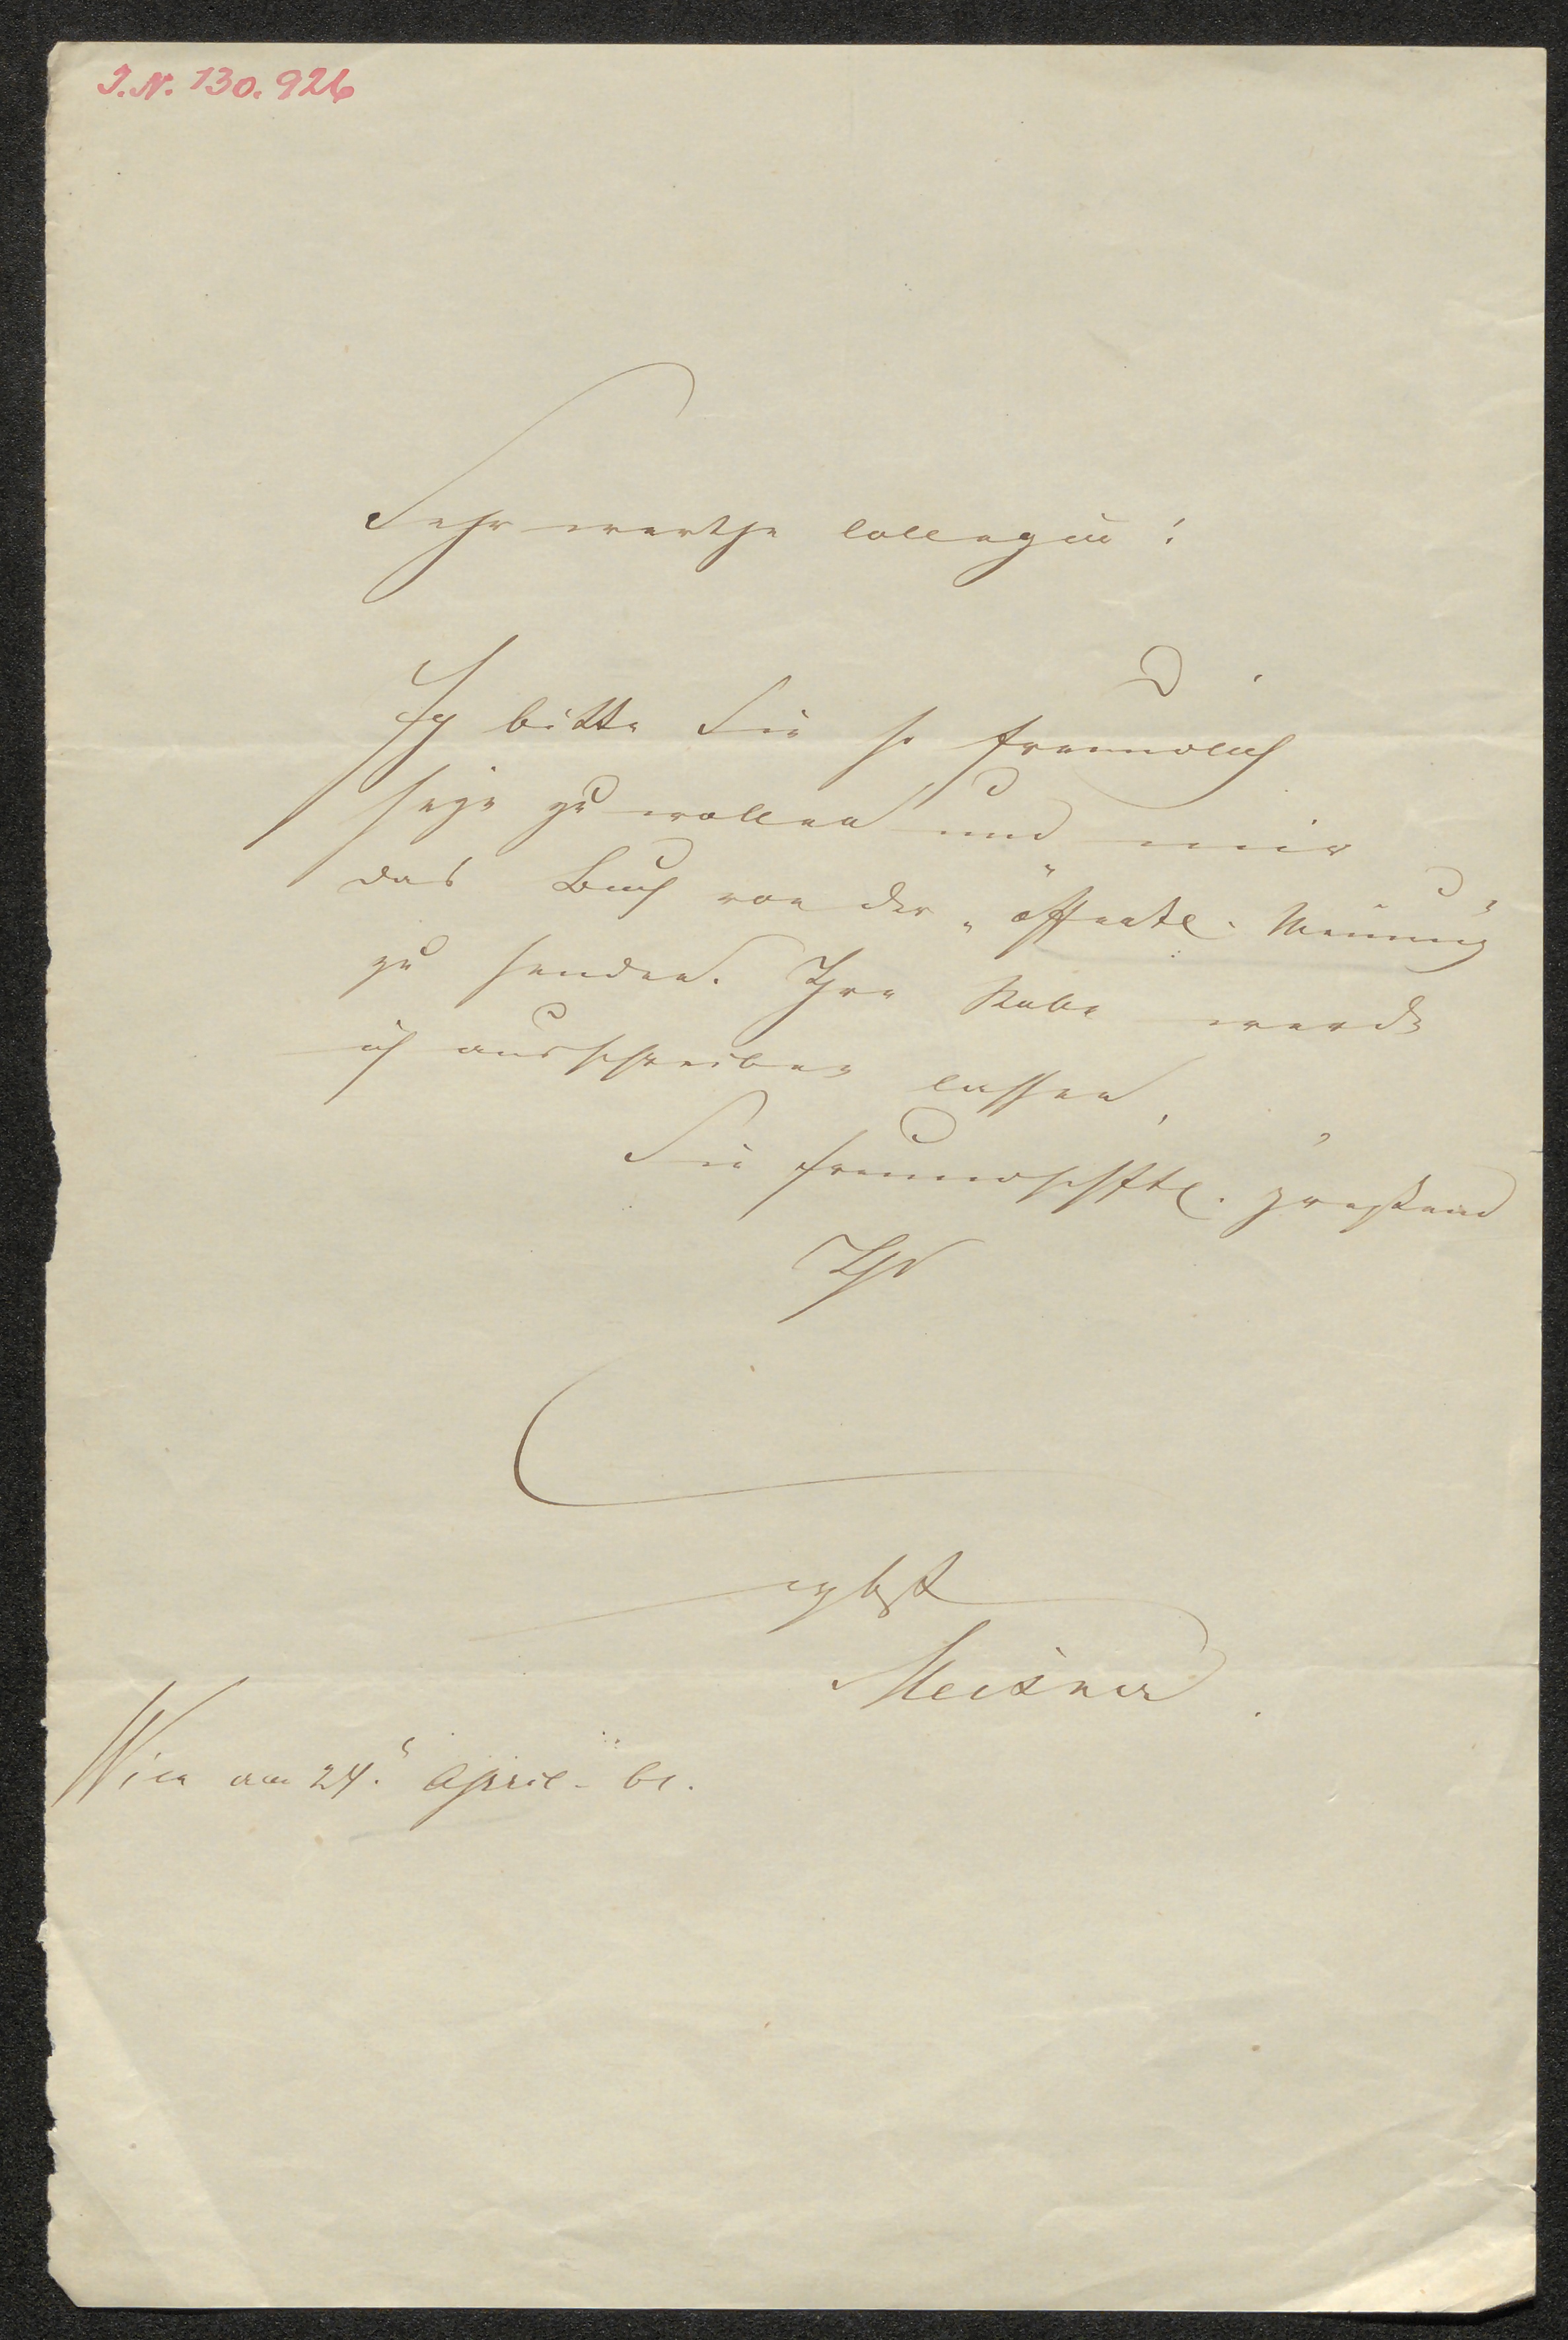 I.N. 130.926
Sehr werthe Collegin!
Ich bitte Sie so freundlich
seyn zu wollen und mir
das Buch von der „öffentl. Meinung"
zu senden. Ihre Rolle werde
ich ausschreiben lassen,
Sie freundschftl. grüßend
Ihr
ergbst
Meixner
Wien am 24. April 61.